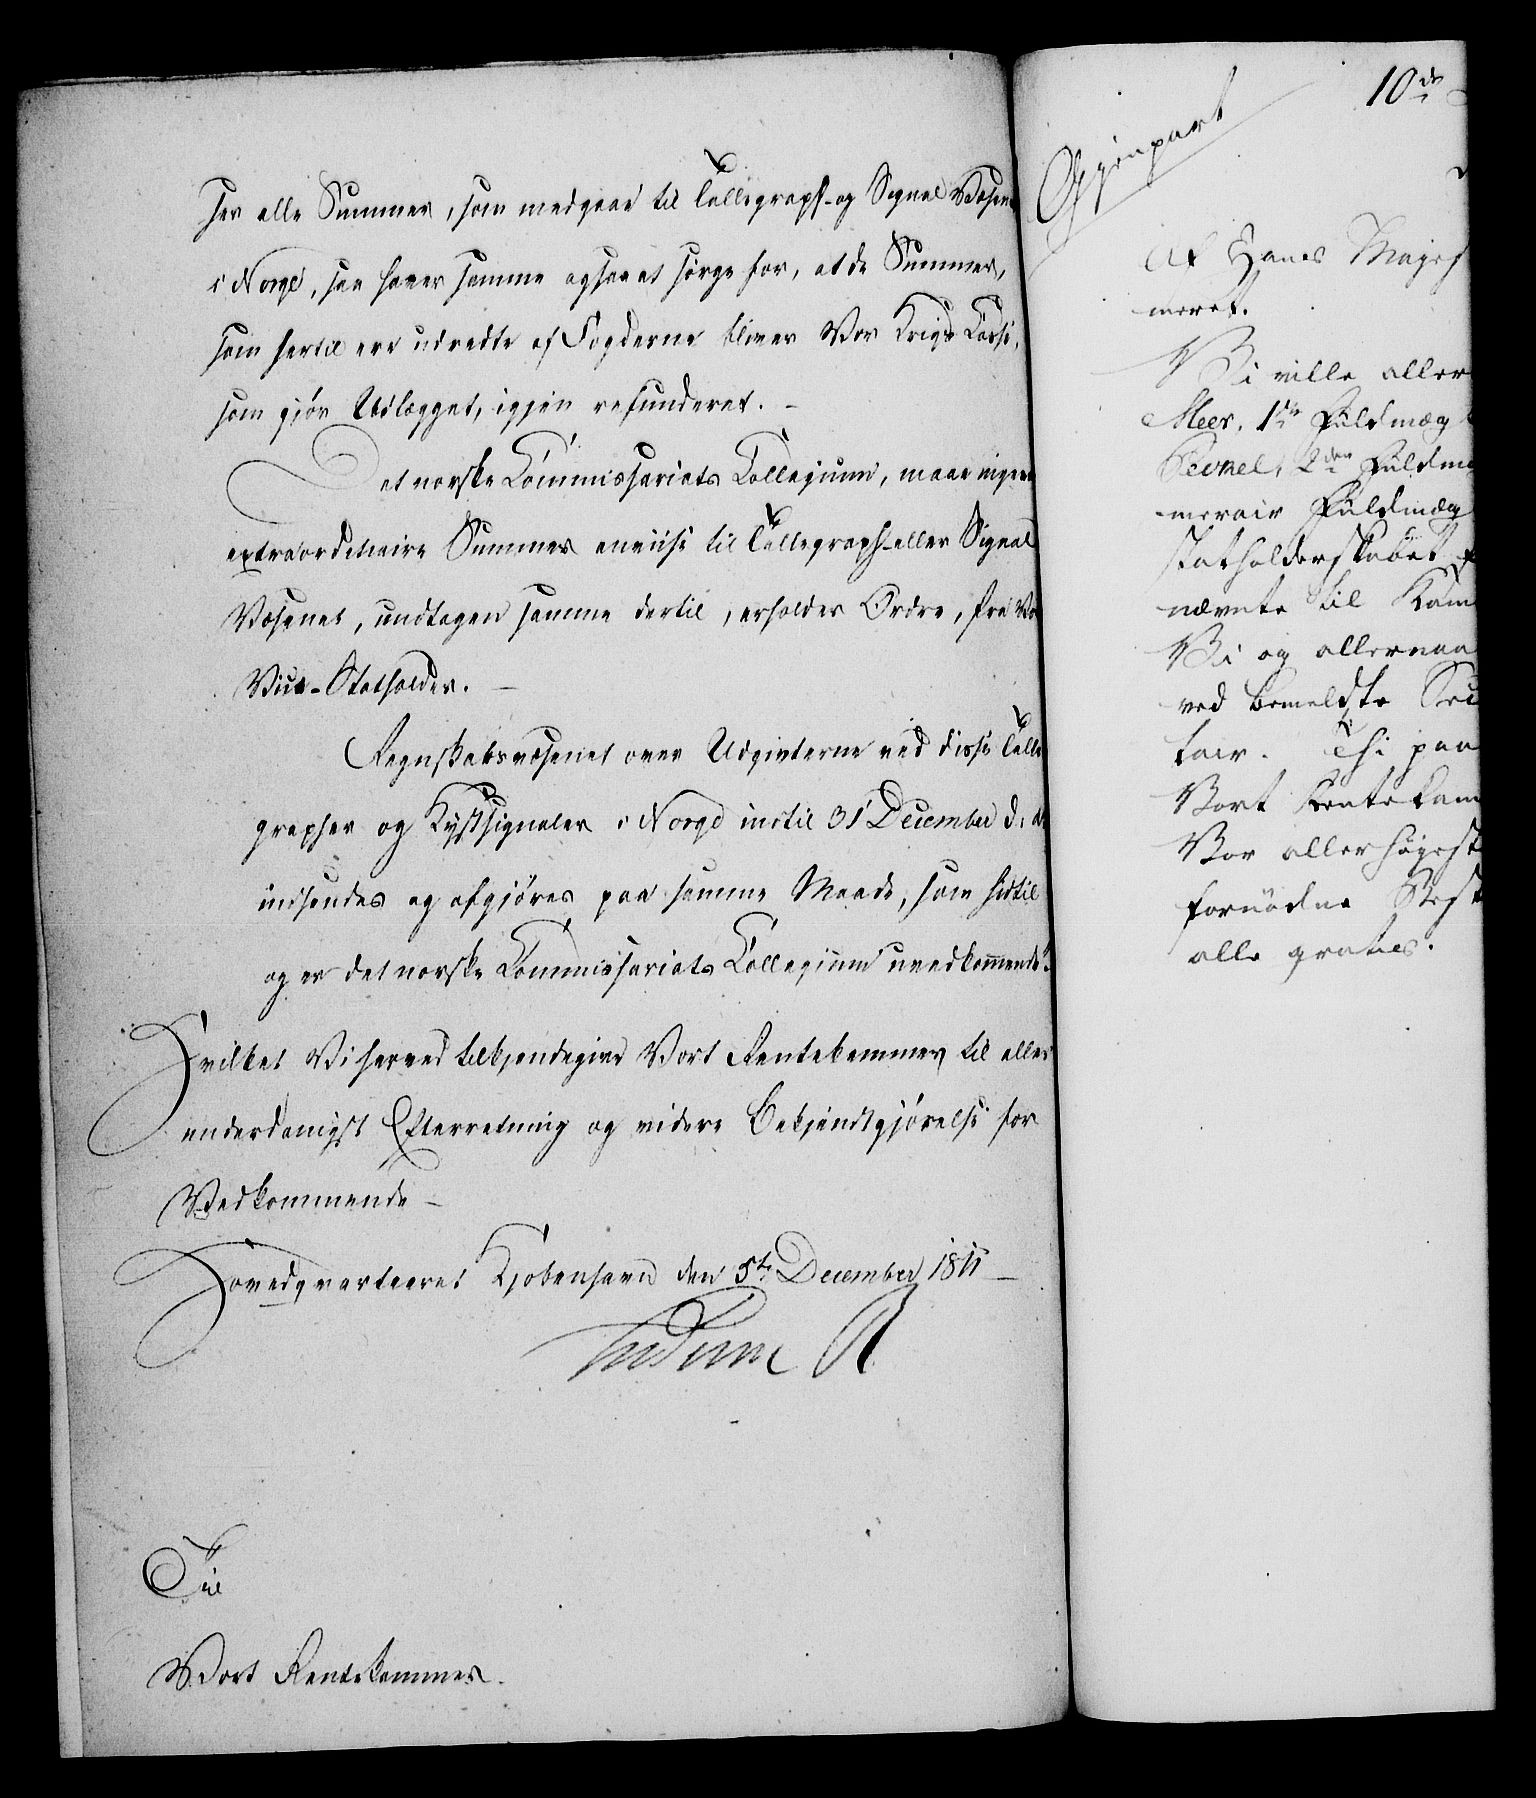 her alle Summer, som medgaae til Tellegraph- og Signal Væsene
i Norge, saa haver samme ogsaa at sørge for, at de Summer,
som hertil ere udredte af Fogderne bliver Vor Krigs Casse,
som gjør Udlægget, igjen refunderet. –
Det norske Commissariats Collegium, maae ingen
extraordinaire Summer anviise til Tellegraph- eller Signal
Væsenet, undtagen samme dertil, erholder Ordre, fra Vor
Vice-Statholder. –
Regnskabsvæsenet over Udgivterne ved disse Telle
grapher og Kystsignaler i Norge indtil 31 December d. A.
indsendes og afgjøres paa samme Maade, som hidtil
og er det norske Commissariats Collegium uvedkommende.
Hvilket Vi herved tilkjendegive Vort Rentekammer til aller
underdanigst Efterretning og videre Bekjendtgjørelse for
Vedkommende –
Hovedqvarteret Kjøbenhavn den 5te December 1811 –
Frederik R
Til
Vort Rentekammer.
10de
Gjenpart
Af Hans Majes
meret.
Vi ville aller
Meer, 1ste Fuldmæg
2den Fuldmæ
merair Fuldmæg
Statholderskabet
nævnte til Kam
Vi og allernaa
ved bemeldte Sec
tair. Thi paa
Vort Rentekam
Vor allerhøiest
fornødne Best
alle gratis.